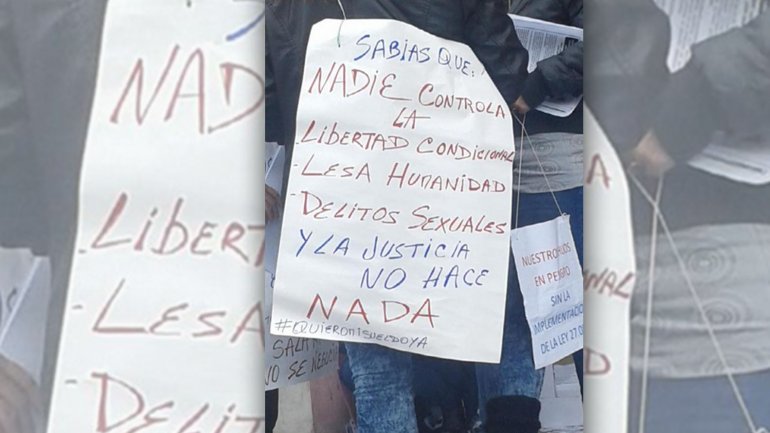 SABÍAS QUE:
NADIE CONTROLA
LA
- LIBERTAD CONDICIONAL
- LESA HUMANIDAD
- DELITOS SEXUALES
Y LA JUSTICIA
NO HACE
NADA
#QUIEROMISUELDOYA
NUESTRO
EN PELIGRO
SIN LA
IMPLEMENTACIÓN
DE LA LEY 27
NO SE